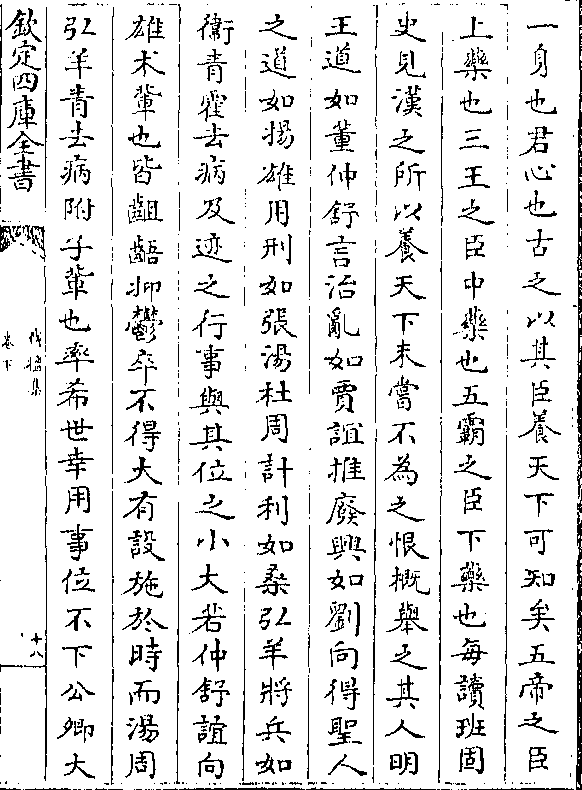 一身也君心也古之以其臣養天下可知矣五帝之臣
上藥也三王之臣中藥也五霸之臣下藥也每讀班固
史見漢之所以養天下未嘗不為之恨概舉之其人明
王道如董仲舒言治亂如賈誼推廢興如劉向得聖人
之道如揚雄用刑如張湯杜周計利如桑弘羊將兵如
衛青霍去病及迹之行事與其位之小大若仲舒誼向
雄术輩也皆齟齬抑鬱卒不得大有設施於時而湯周
弘羊青去病附子輩也率希世幸用事位不下公卿大
欽定四庫全書
伐檀集
卷下
十八